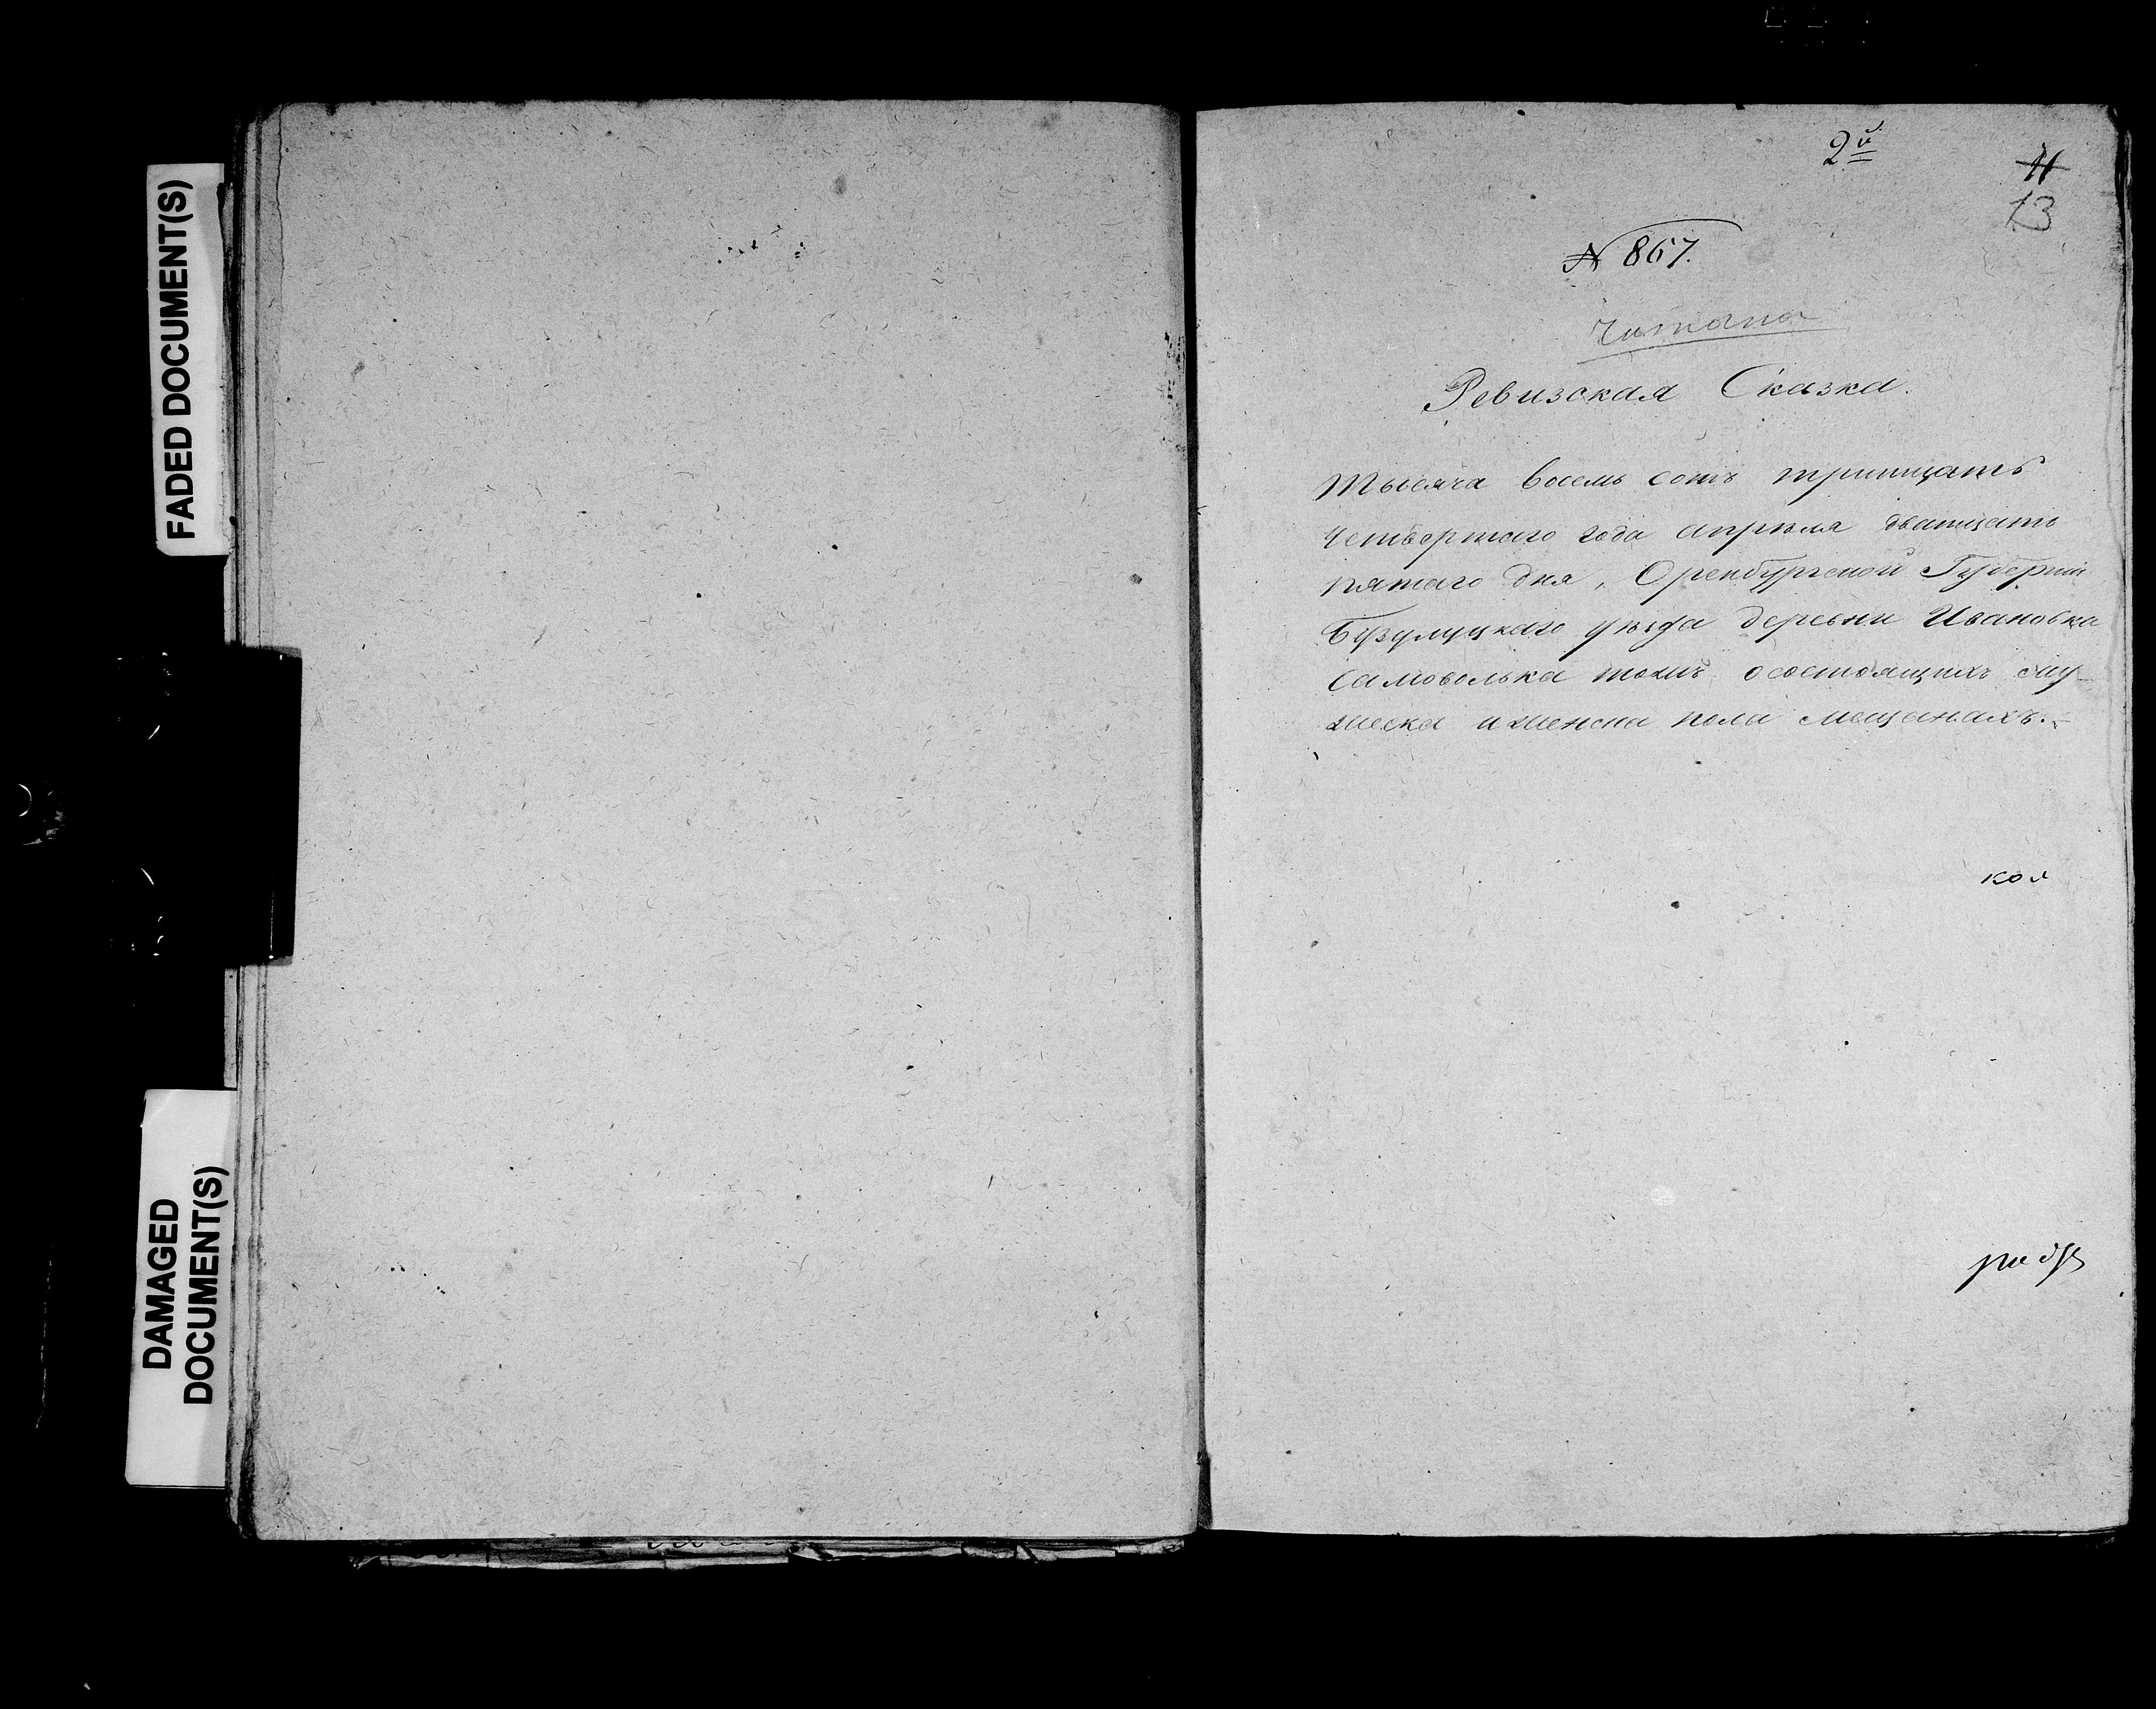 FADED DOCUMENT(S)
DAMAGED
DOCUMENT(S)
2й
11
13
№ 867.
Читана
Ревизская Сказка.
Тысяча восемь сотъ тритцать
четвертаго года апреля дватцать
пятаго дня, Оренбургской Губернии
Бузулуцкаго уезда деревни Ивановка
Самоволька тожъ о состоящихъ му-
жеска и женска пола мещанахъ.
кол